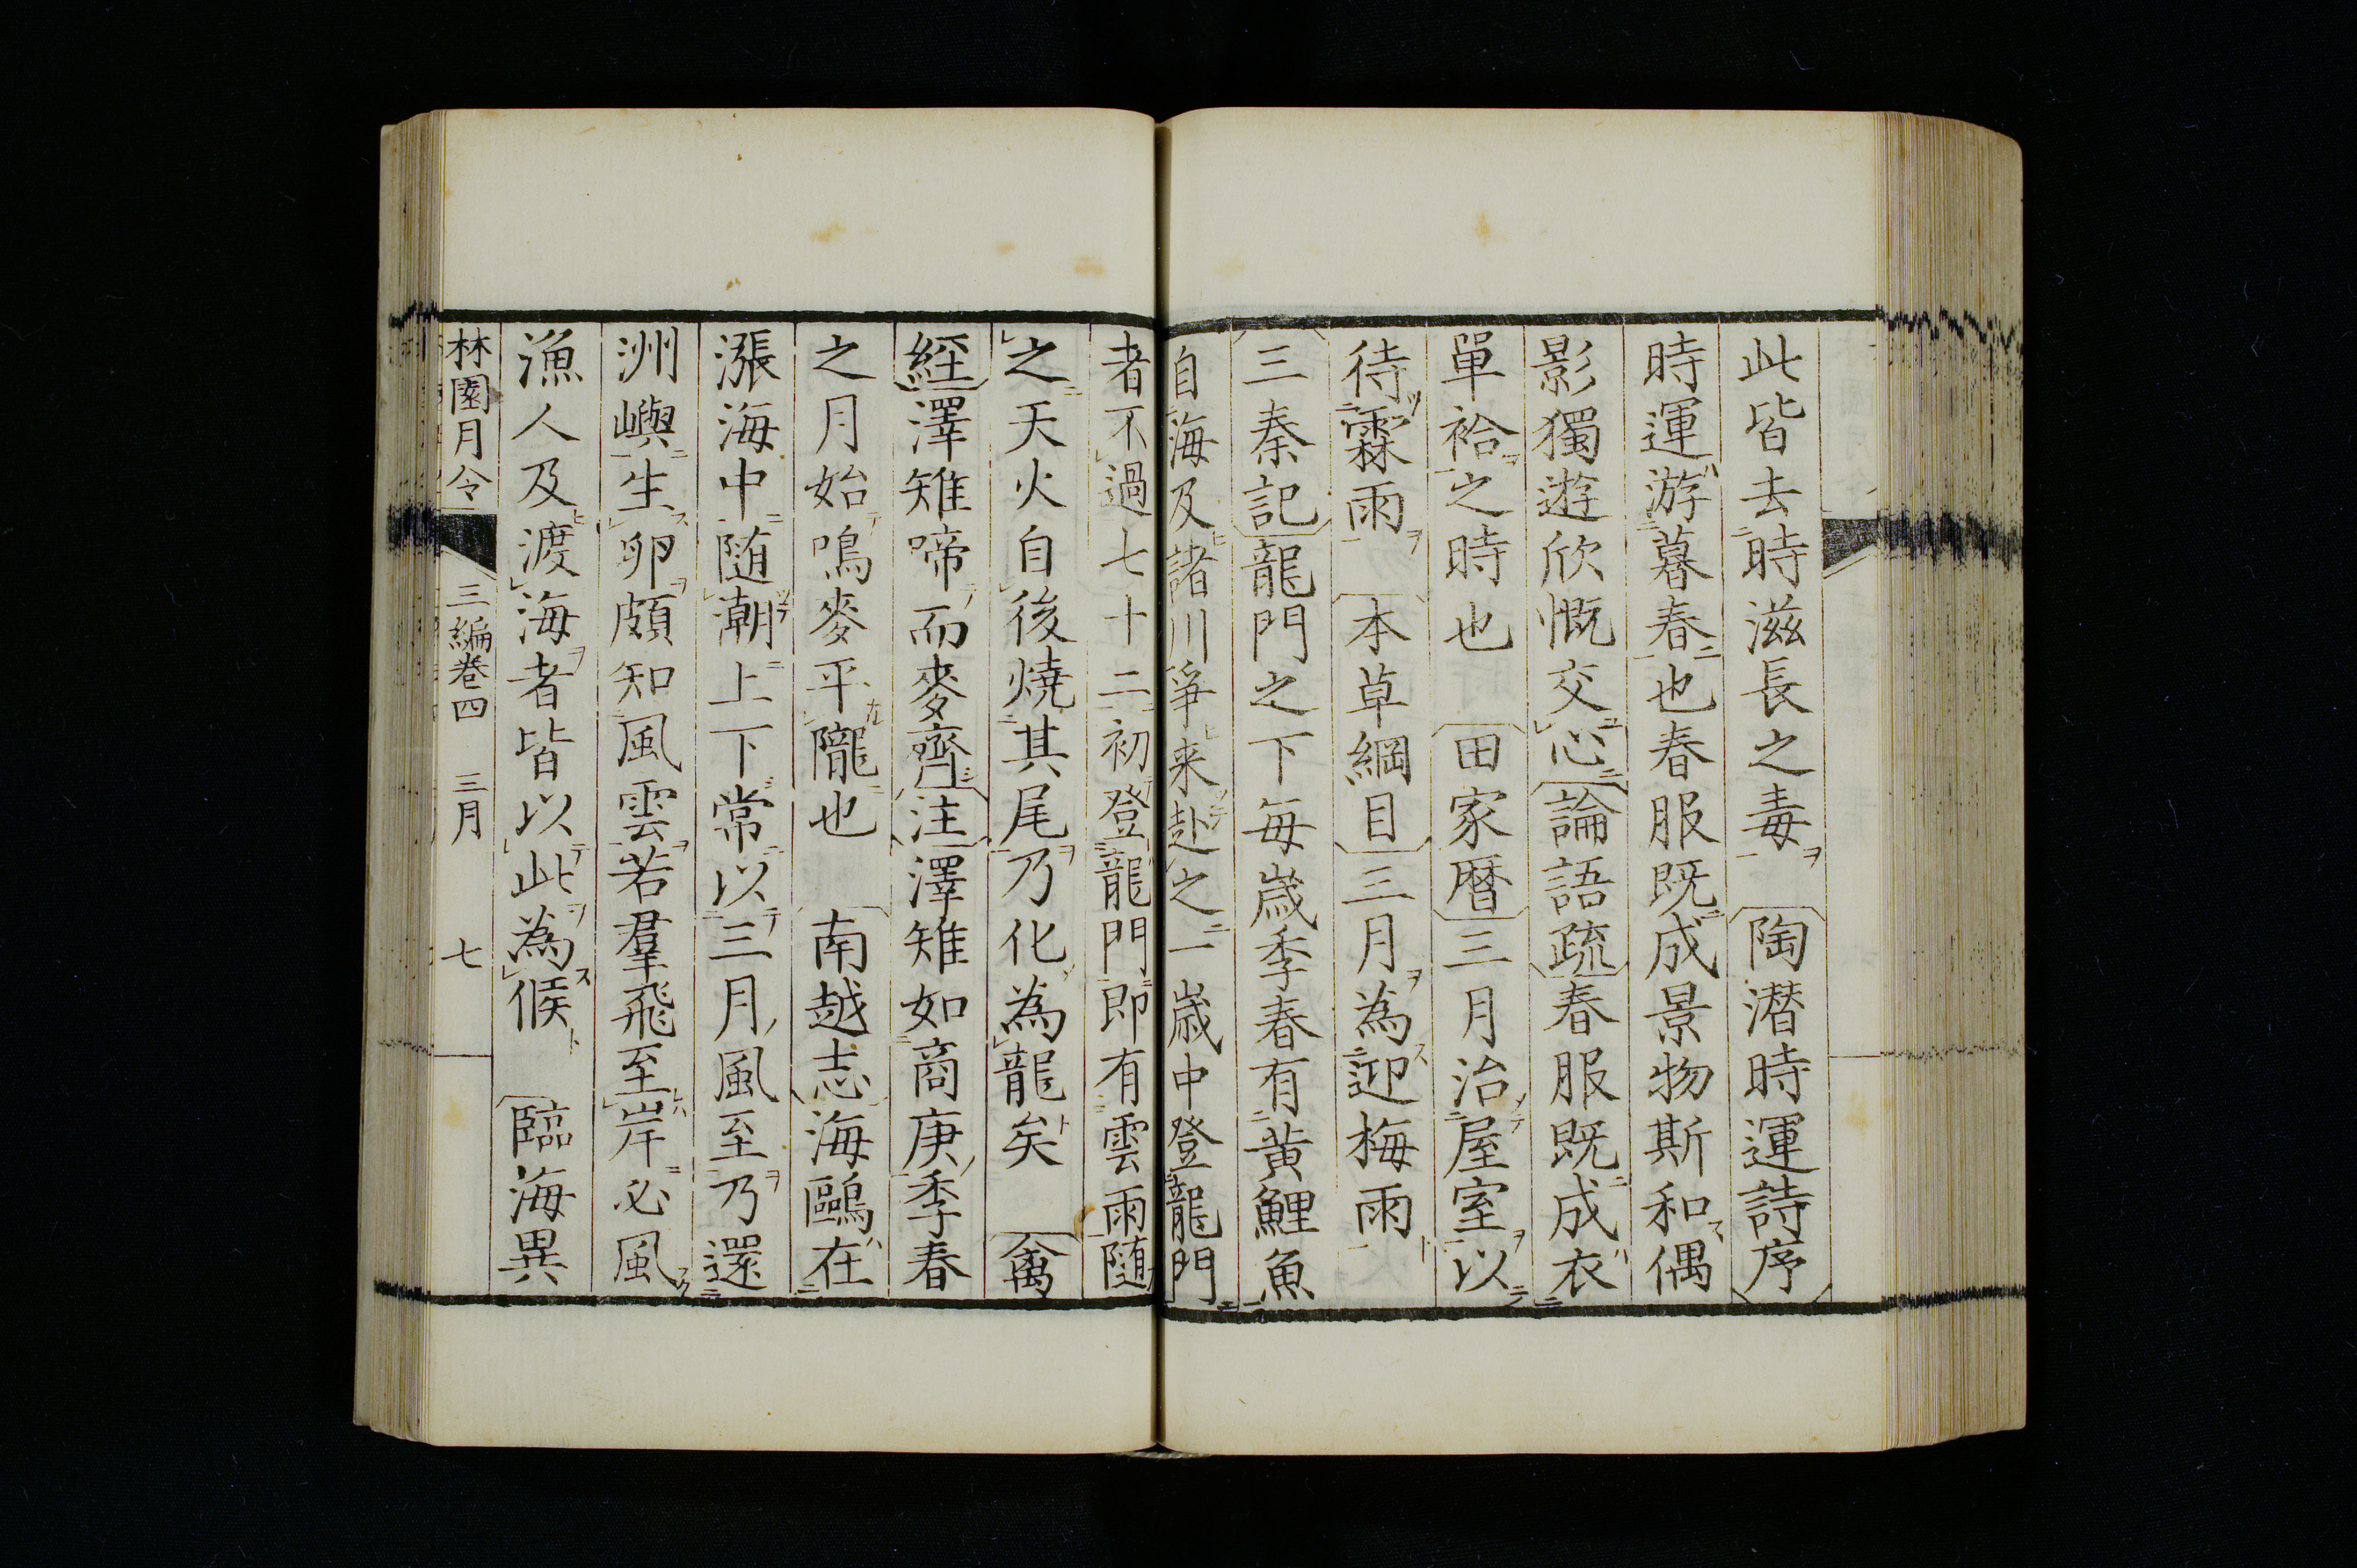 此皆去時滋長之毒　陶潜時運詩序
時運游暮春也春服既成景物斯和偶
影獨遊欣慨交心論語疏春服既成衣
單袷之時也　田家暦三月治屋室以
待霖雨　本草綱目三月為迎梅雨
三秦記龍門之下毎歳季春有黄鯉魚
自海及諸川爭来赴之一歳中登龍門
者不過七十二初登龍門即有雲雨随
之天火自後焼其尾乃化為龍矣　禽
経澤雉啼而麥齊注澤雉如商庚季春
之月始鳴麥平隴也　南越志海鷗在
漲海中随潮上下常以三月風至乃還
洲嶼生卵頗知風雲若羣飛至岸必風
漁人及渡海者皆以此為候　臨海異
林園月令　三編巻四　三月　七